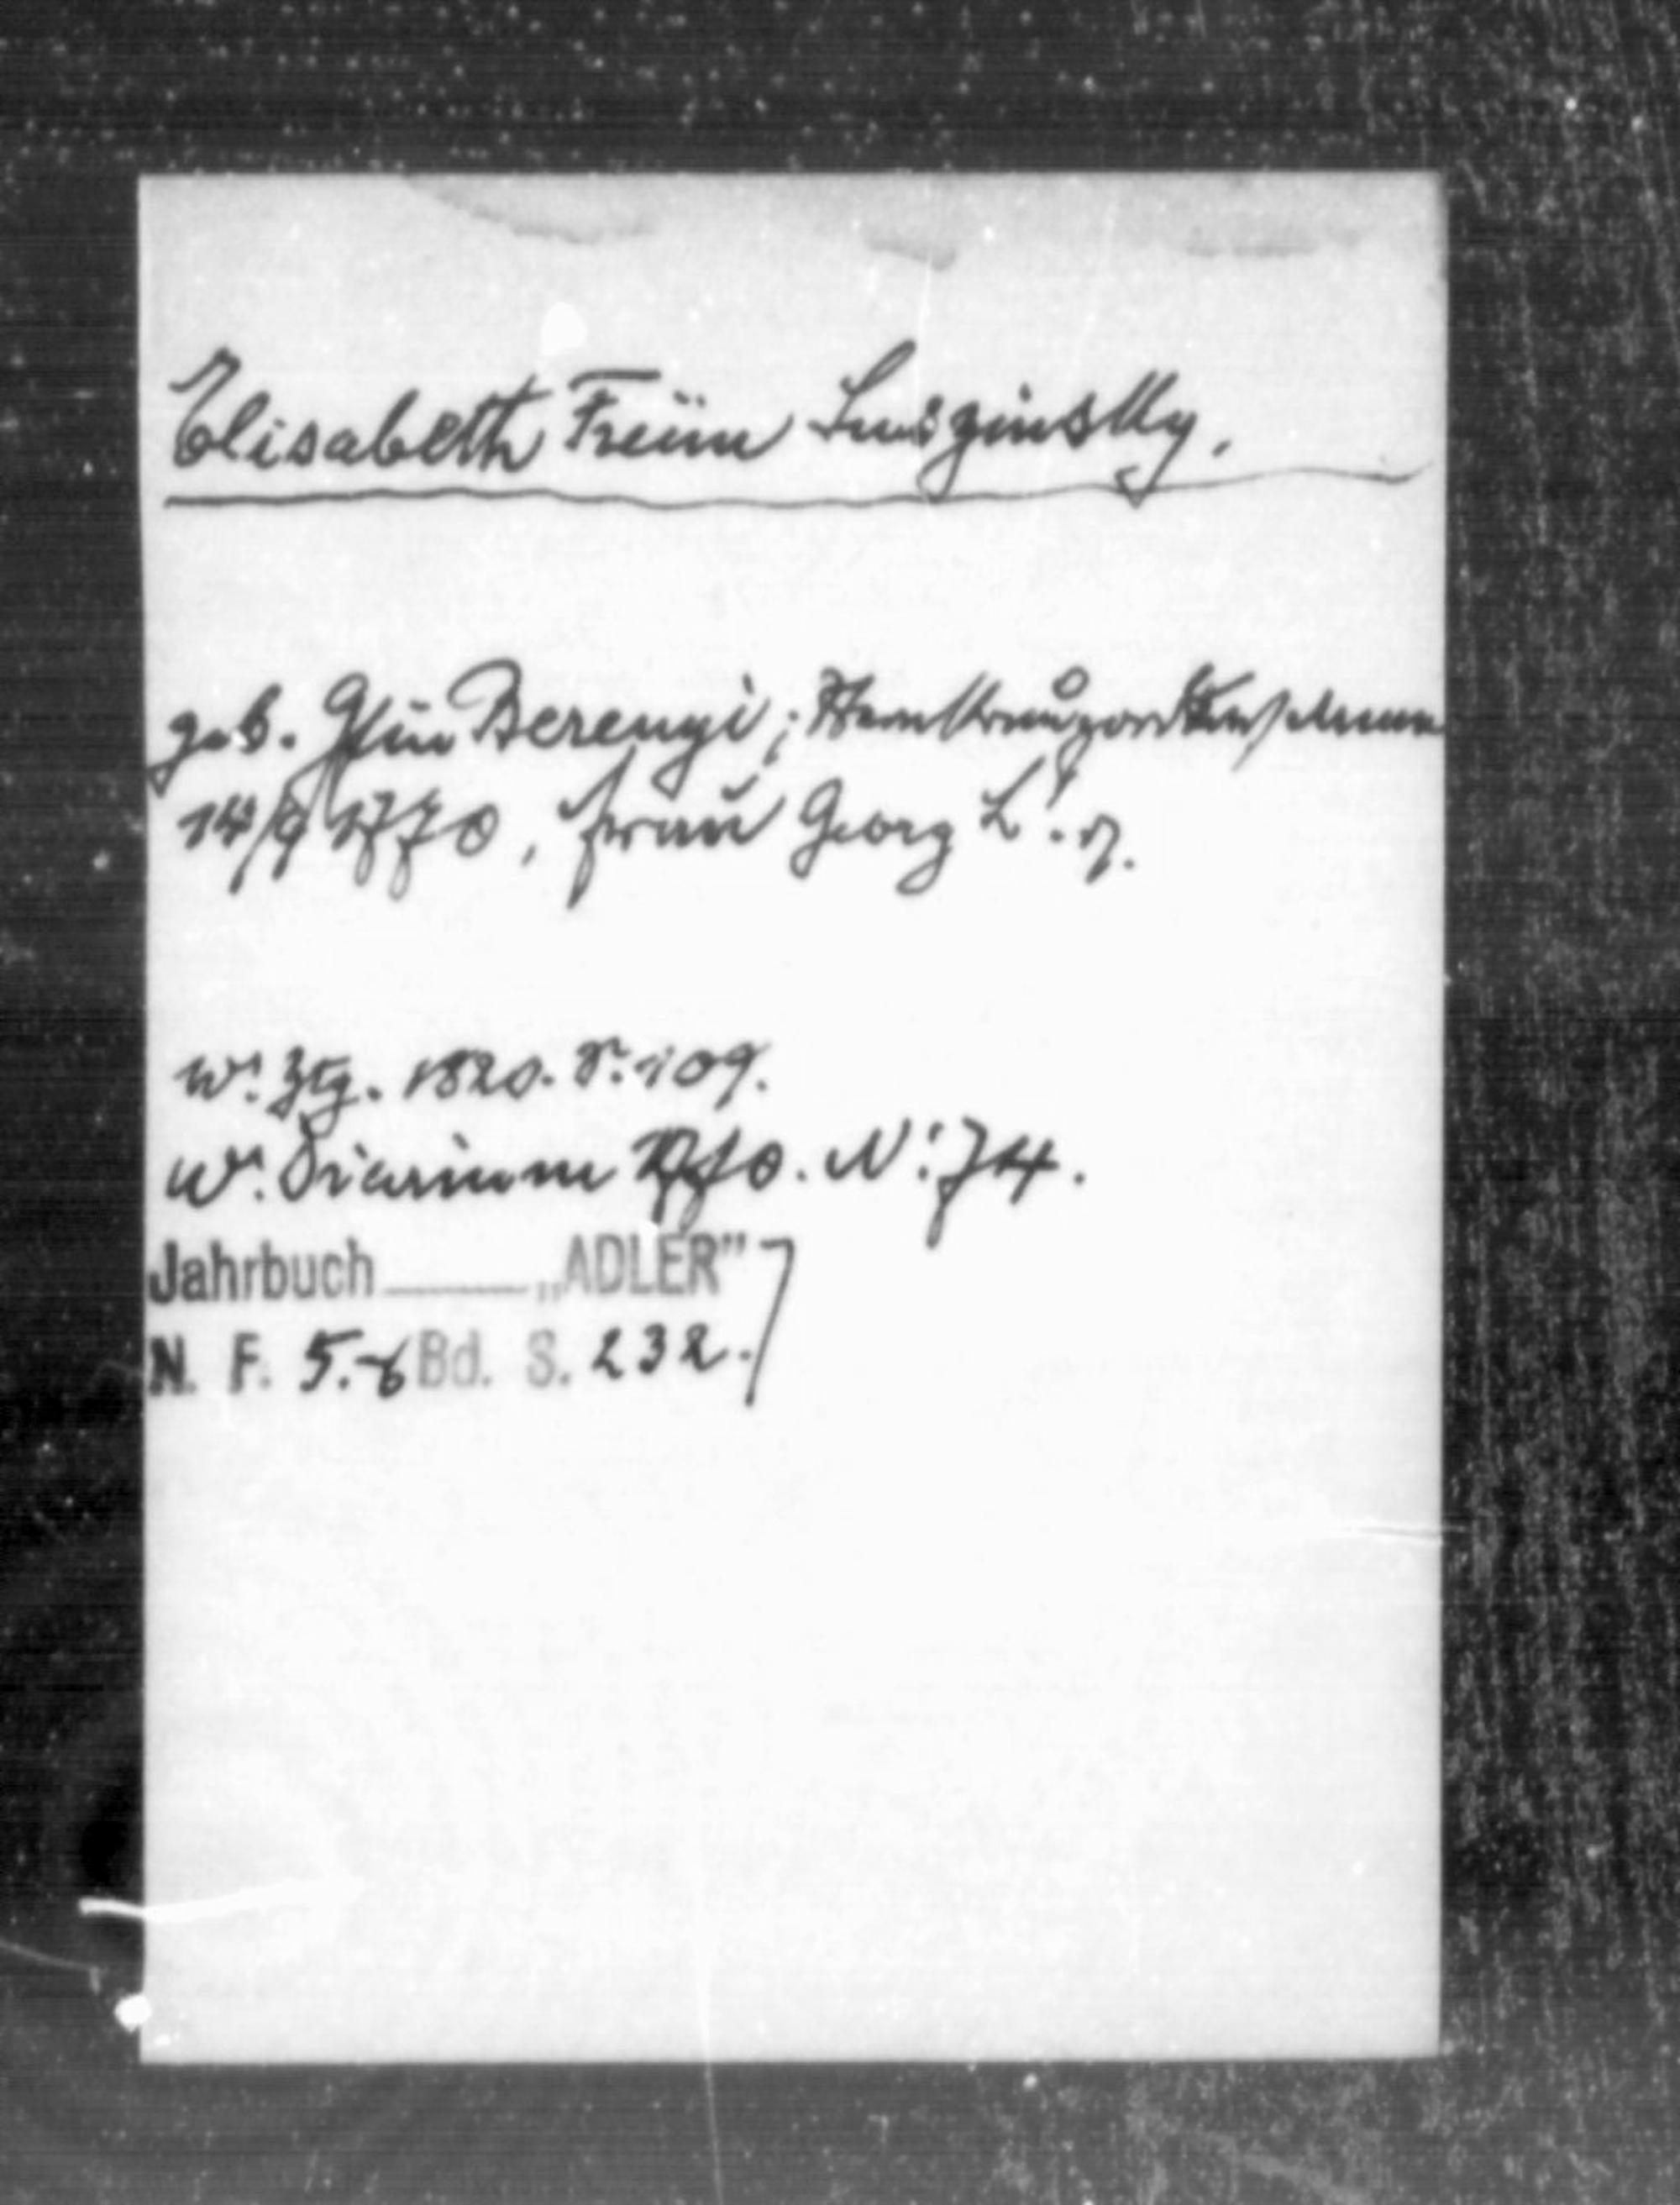 Elisabeth Freiin Luszinsky.
geb. Gfin Berenyi; Sternkreuzordens
14/9 1770, Frau Georg L's.
W. Ztg. 1820. S. 109.
W. Diarium 1770. N: 74.
Jahrbuch ____ „ADLER”
N. F. 5.-6 Bd. S. 232.